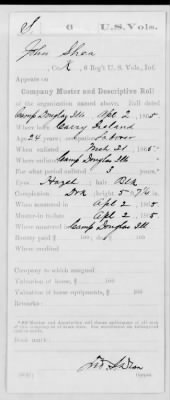 S 6 U.S. Vols.
John Shea
Co. K, 6 Reg't U. S. Vols., Inf.
Appears on
Company Muster and Descriptive Roll
of the organization named above. Roll dated
Camp Douglas Ills Apl 2, 1865
Where born Carry Ireland
Age 24
When enlisted Mch 21 1865
Where enlisted Camp Douglas Ills
For what period enlisted 3 years.
Eyes Hazel ; hair Blk
Complexion Drk ; height 5
When mustered in Apl 2, 1865
Muster-in to date Apl 2, 1865
Where mustered in Camp Douglas Ills
Bounty paid $ 100 ; due $ 100
Where credited
Company to which assigned
Valuation of horse, $ 100
Valuation of horse equipments, $ 100
Remarks:
Book mark:
Copyist.